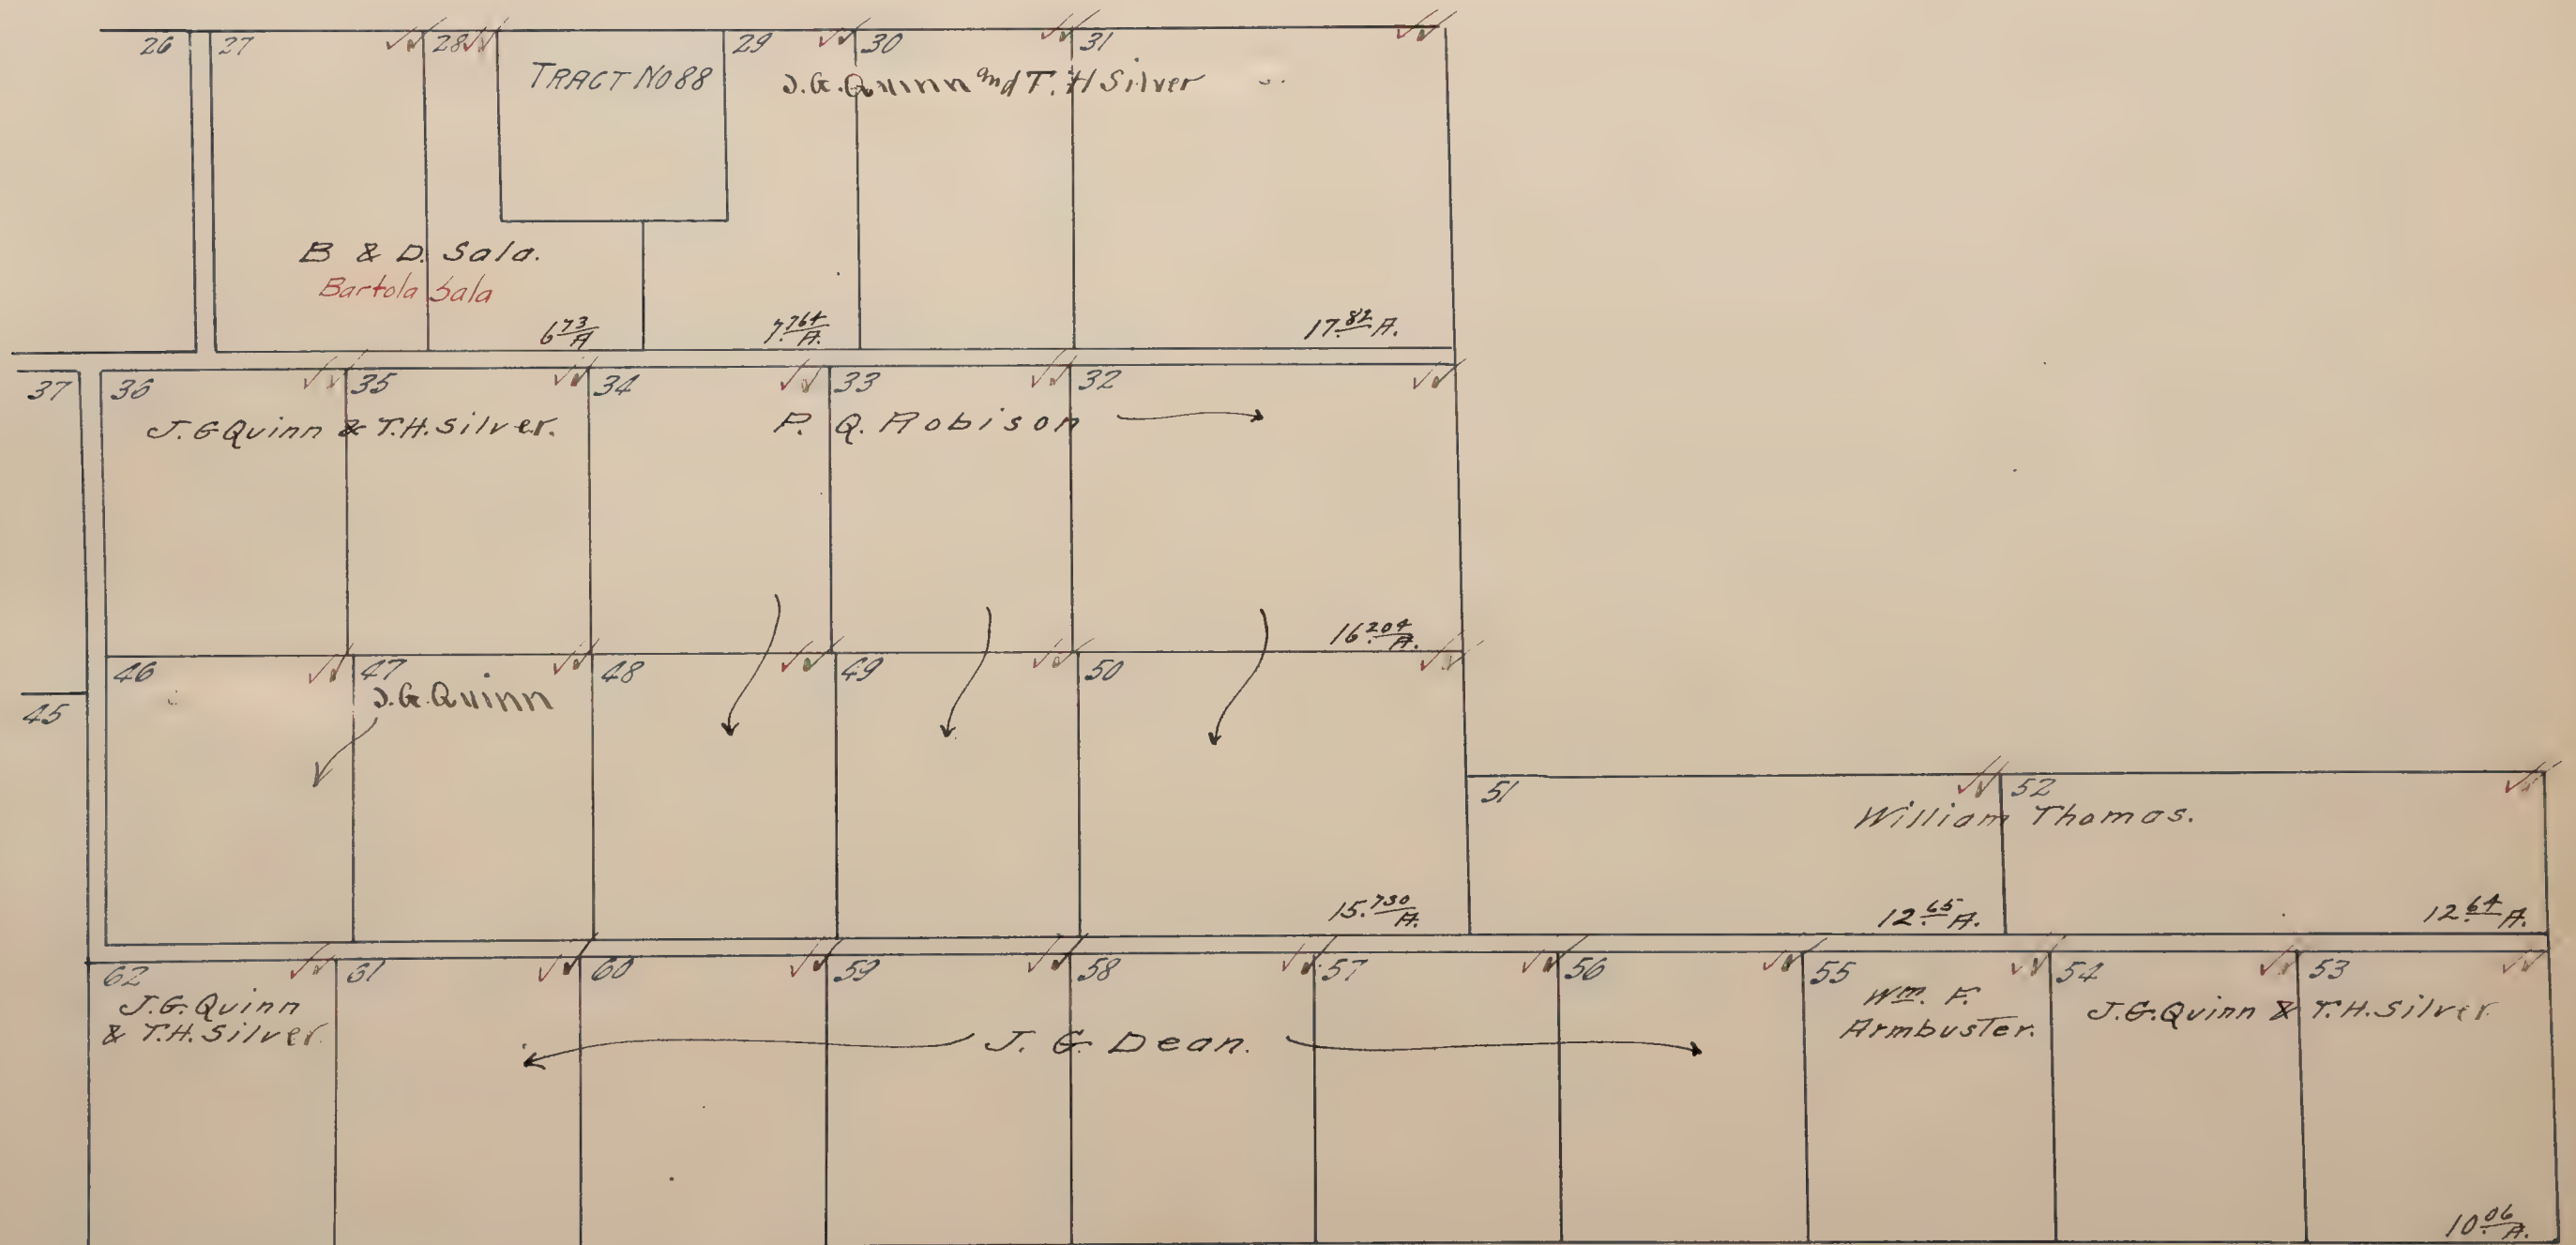 26 27 28 29 30 31
TRACT No 88
J.G. Quinn and T. H Silver
B & D. Sala.
Bartola Sala
6 73/A 7. 764/A. 17. 82 A.
37 36 35 34 33 32
J. G Quinn & T.H. Silver.
P. Q. Robison
16. 204/A.
46 47 48 49 50
45
J.G. Quinn
51 52
William Thomas.
15. 730/A. 12. 65 A. 12 64 A.
62 61 60 59 58 57 56 55 54 53
J.G. Quinn
& T.H. Silver
J. G. Dean.
Wm. F.
Armbuster.
J.G. Quinn & T.H. Silver
10. 06/A.